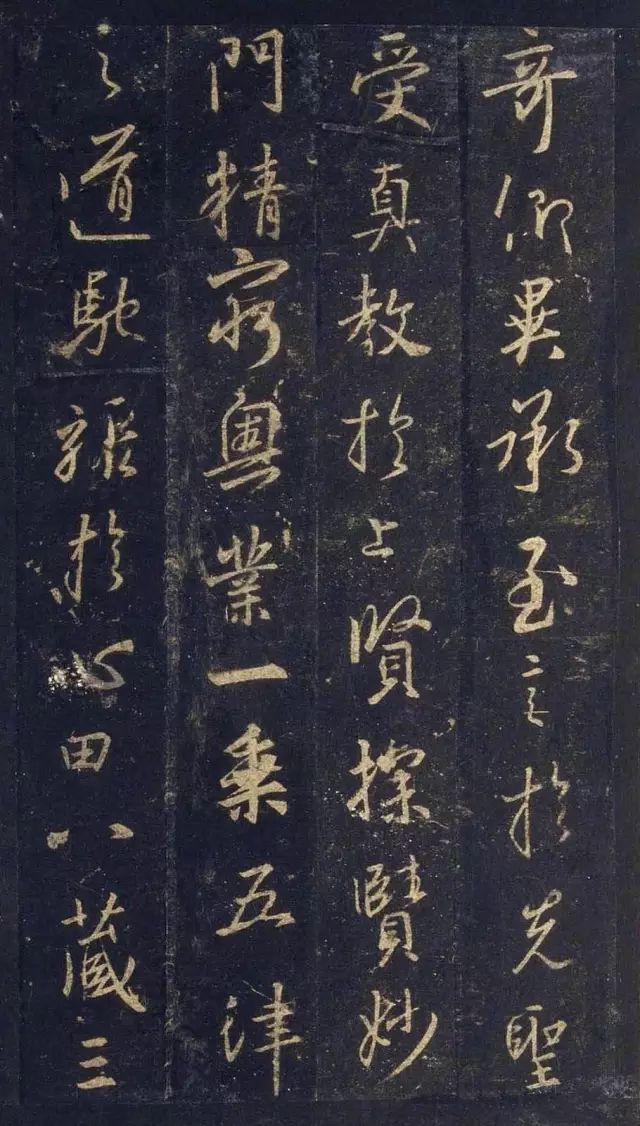 奇仰畢承至言於先聖
受真教於上賢探賾妙
門精窮奧業一乘五律
之道馳驟於心田八藏三